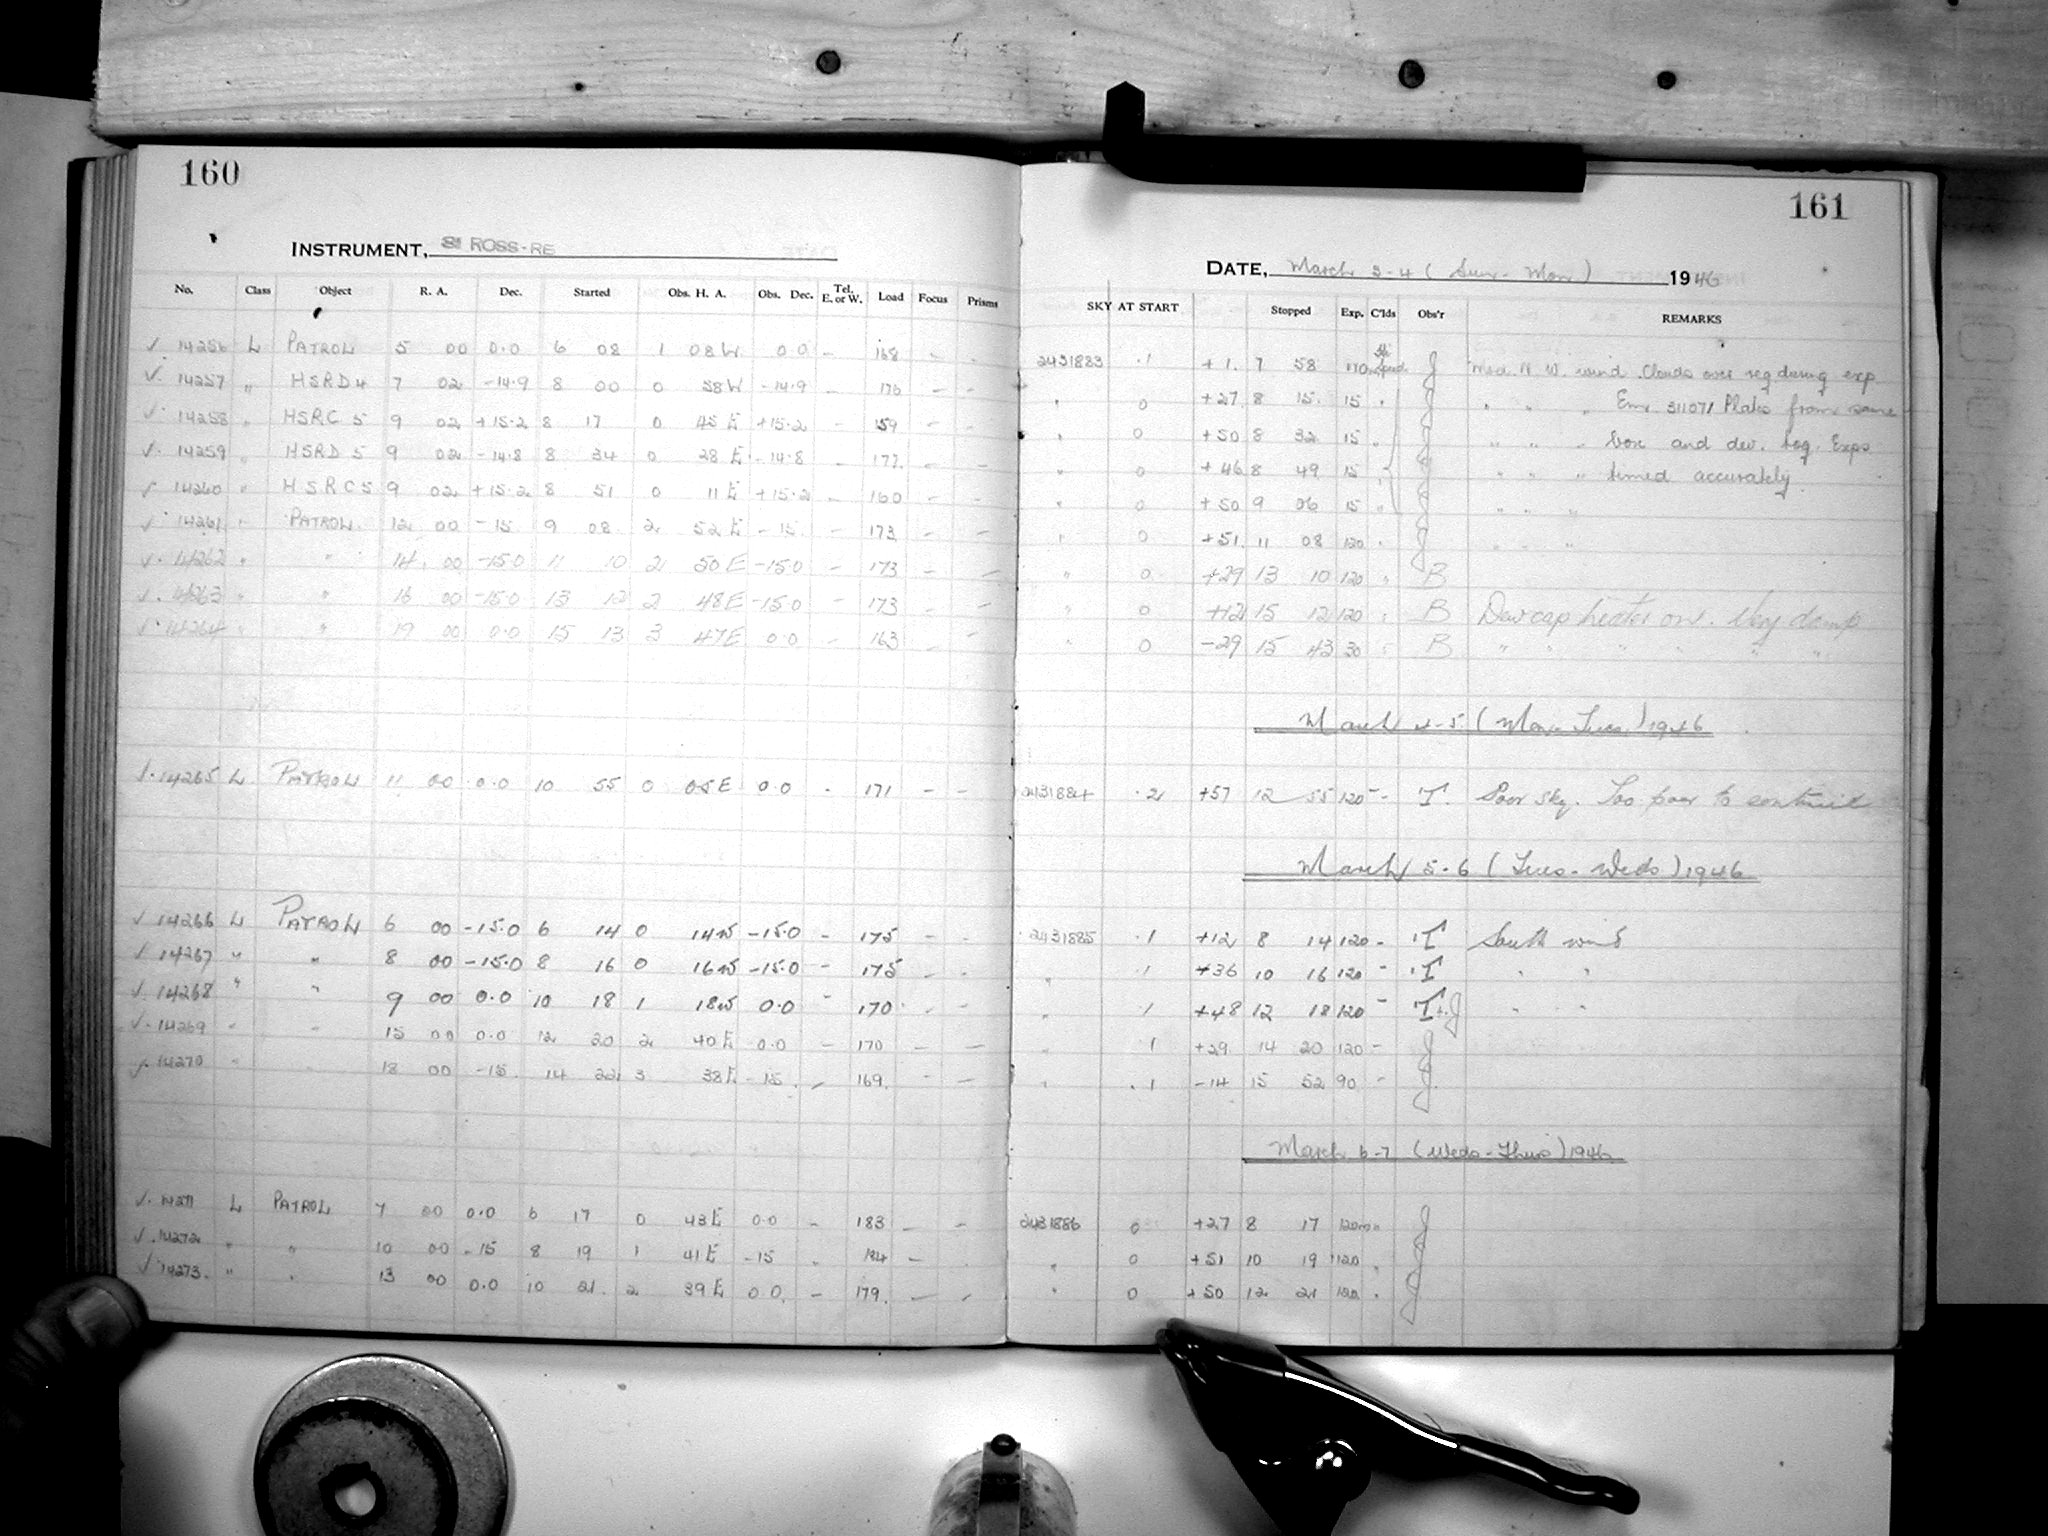 160
INSTRUMENT, ROSS-RE
No. Class Object R. A. Dec. Started Obs. H. A. Obs. Dec. Tel. E. or W. Load Focus Prisms
√ 14256 L PATROL 5 00 0.0 6 08 1 08 W 0.0 - 168 - -
√. 14257 " HSRD4 7 02 -14.9 8 00 0 58 W -14.9 - 176 - -
√. 14258 " HSRC 5 9 02 +15.2 8 17 0 45 E +15.2 - 159 - -
√. 14259 " HSRD 5 9 02 -14.8 8 34 0 28 E -14.8 - 177 - -
√ 14260 " HSRC5 9 02 +15.2 8 51 0 11 E +15.2 - 160 - -
√ 14261 " PATROL 12 00 -15. 9 08 2 52 E -15. - 173 - -
√. 14262 " " 14 00 -15.0 11 10 2 50 E -15.0 - 173 - -
√. 14263 " " 16 00 -15.0 13 12 2 48 E -15.0 - 173 - -
√. 14264 " " 19 00 0.0 15 13 3 47 E 0.0 - 163 - -
√. 14265 L PATROL 11 00 0.0 10 55 0 05 E 0.0 - 171 - -
√ 14266 L PATROL 6 00 -15.0 6 14 0 14 W -15.0 - 175 - -
√ 14267 " " 8 00 -15.0 8 16 0 16 W -15.0 - 175 - -
√ 14268 " " 9 00 0.0 10 18 1 18 W 0.0 - 170 - -
√ 14269 " " 15 00 0.0 12 20 2 40 E 0.0 - 170 - -
√ 14270 " " 18 00 -15. 14 22 3 38 E -15. - 169. - -
√. 14271 L PATROL 7 00 0.0 6 17 0 43 E 0.0 - 183 - -
√. 14272 " " 10 00 -15 8 19 1 41 E -15 - 184 -
√ 14273. " " 13 00 0.0 10 21. 2 39 E 0.0. - 179. - -
161
DATE, March 3-4 (Sun-Mon) 1946
SKY AT START Stopped Exp. C'lds Obs'r REMARKS
2431883 .1 +1. 7 58 110 J Mod. N W. wind. Clouds over reg during exp
" 0 +27 8 15. 15 " J " " " Em. 311071 Plates from same
" 0 +50 8 32 15 " J " " " box and dev. tog. Exps
" 0 +46 8 49 15 " J " " " timed accurately
" 0 +50 9 06 15 " J " " "
" 0 +51. 11 08 120 " J " " "
" 0 +29 13 10 120 " B
" 0 +12 15 12 120 " B Dewcap heater on. Very damp
" 0 -29 15 43 30 " B " " " " " "
March 4-5 (Mon-Tues) 1946
2431884 .2 +57 12 55 120 - T. Poor sky. Too poor to continue
March 5-6 (Tues-Weds) 1946
2431885 .1 +12 8 14 120 - T South wind
" .1 +36 10 16 120 - T " "
" .1 +48 12 18 120 - T+J " "
" .1 +29 14 20 120 - J
" .1 -14 15 52 90 - J
March 6-7 (Weds-Thurs) 1946
2431886 0 +27 8 17 120 J
" 0 +51 10 19 120 " J
" 0 +50 12 21 120 " J